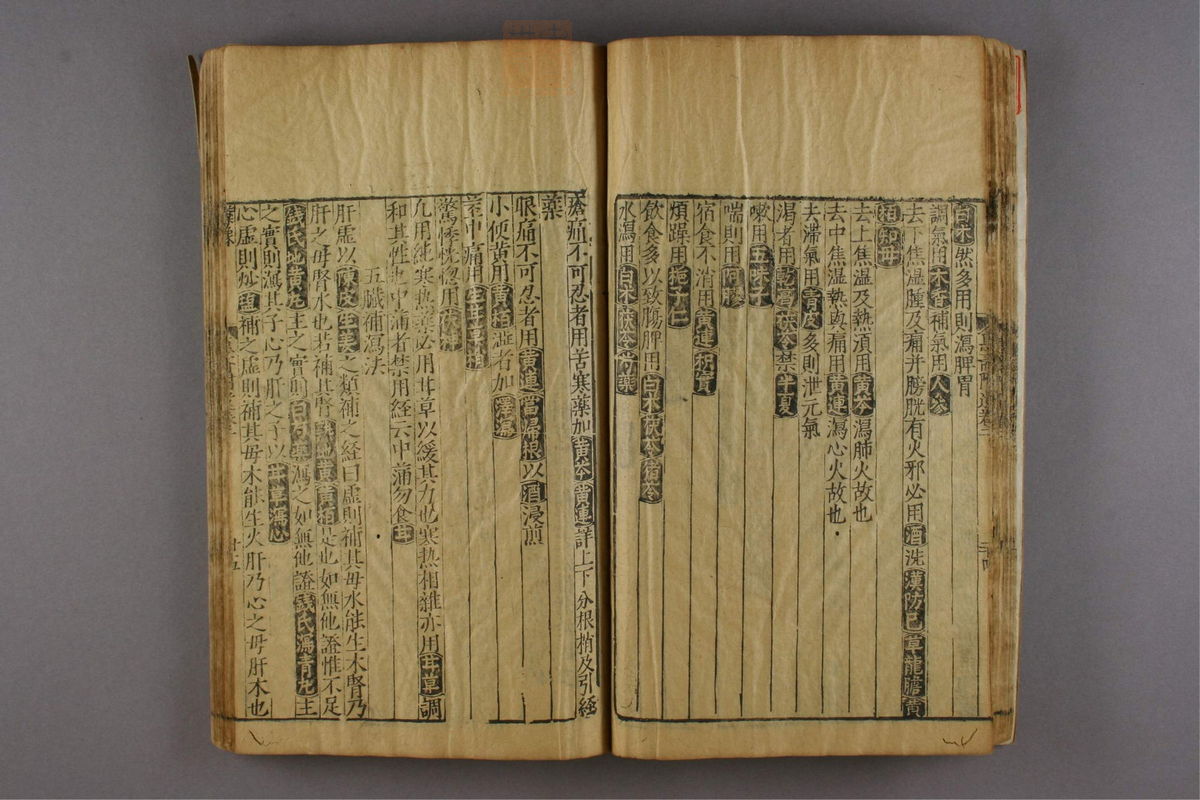 白朮然多用則瀉脾胃
調氣用木香補氣用人參
去下焦温腫及痛并膀胱有火邪必用酒洗漢防巳草龍膽黄
栢知母
去上焦温及熱湏用黄芩瀉肺火故也
去中焦温熱與痛用黄連瀉心火故也
去滯氣用青皮多則泄元氣
渴者用乾葛茯苓禁半夏
嗽用五味子
喘則用阿膠
宿食不消用黄連枳實
煩躁用梔子仁
飲食多以致腸脾用白朮茯苓猪苓
水瀉用白朮茯苓芍藥
瘡痛不可忍者用苦寒藥加黄芩黄連詳上下分根梢及引経
藥
眼痛不可忍者用黄連當歸根以酒浸煎
小便黄用黄栢澁者加澤瀉
莖中痛用生甘草梢
驚悸恍惚用茯神
凢用純寒热藥必用甘草以緩其力也寒热相雜亦用甘草調
和其性也中蒲者禁用経云中蒲勿食甘
五臟補瀉法
肝虚以陳皮生姜之類補之経曰虚則補其毋水能生木腎乃
肝之毋腎水也若補其腎熟地黄黄栢是也如無他證惟不足
錢氏地黄丸主之實則白芍藥瀉之如無他證錢氏瀉青丸主
之實則瀉其子心乃肝之子以甘草瀉心
心虚則炒塩補之虚則補其毋木能生火肝乃心之毋肝木也
十五